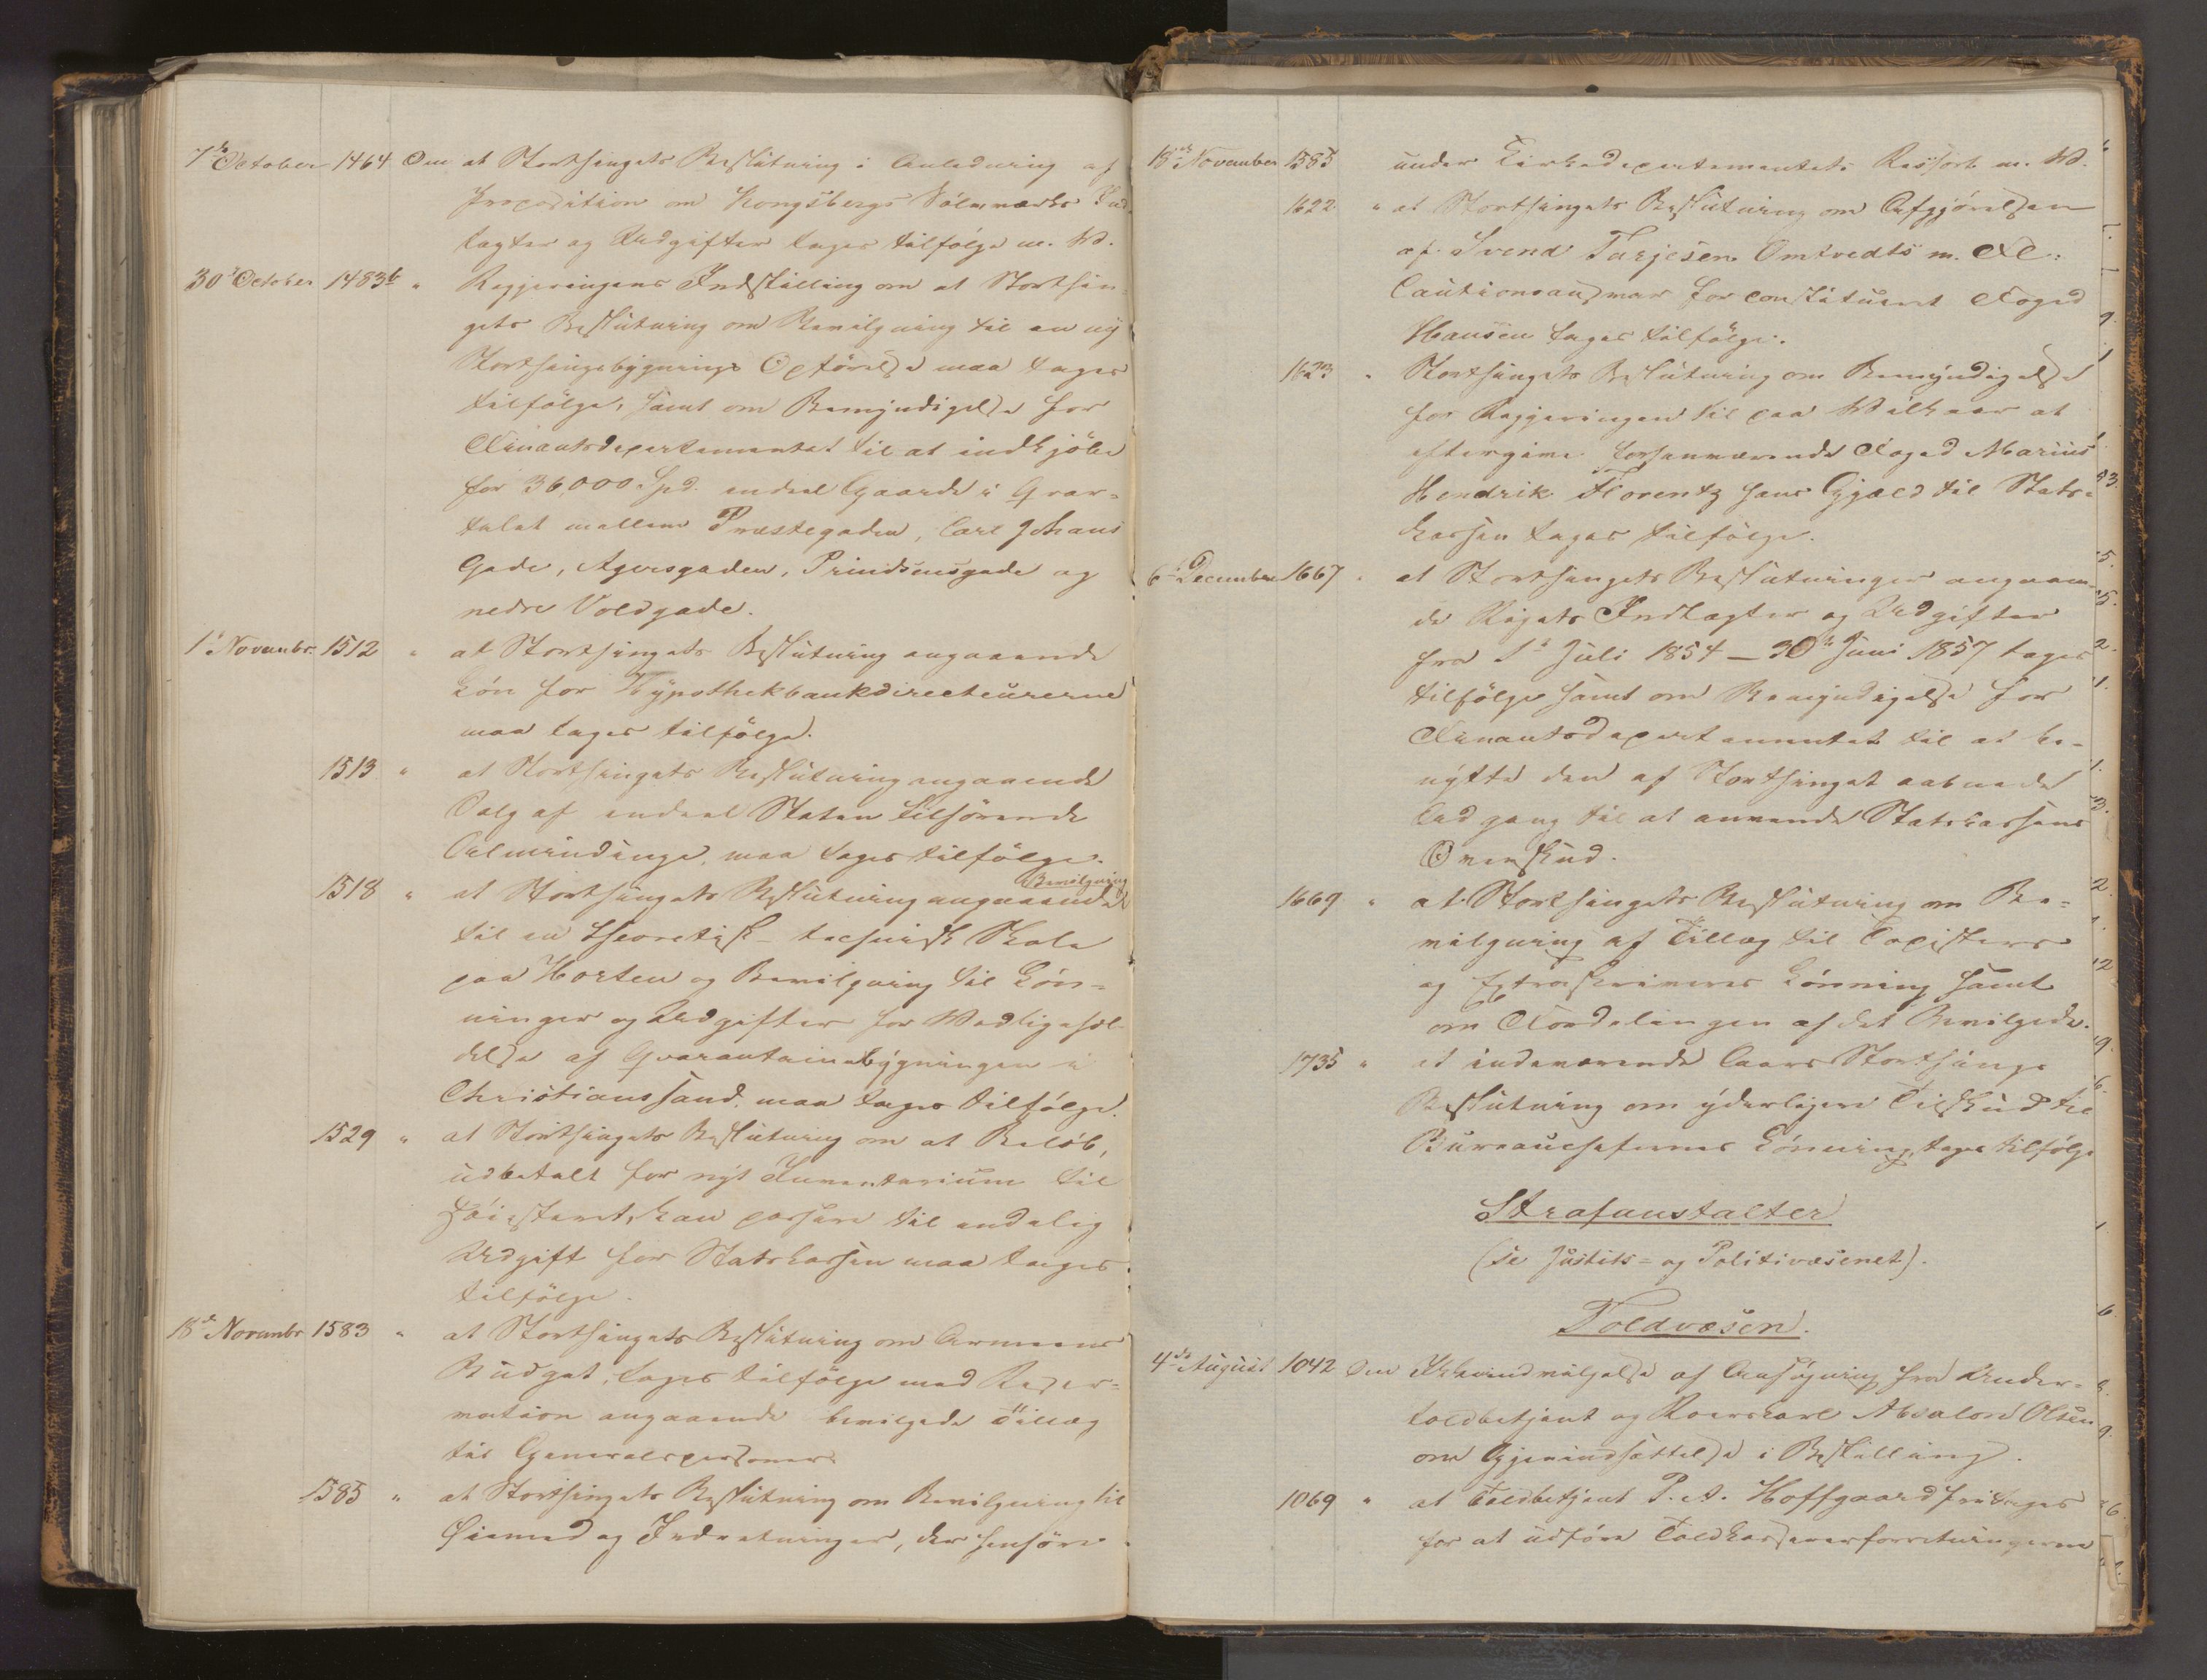 7de October 1464 Om at Storthingets Beslutning i Anledning af
Proposition om Kongsbergs Sølvværks Ind
tægter og Udgifter tages tilfølge m. V.
30te October 1483b " Regjeringens Indstilling om at Storthin-
gets Beslutning om Bevilgning til en ny
Storthingsbygnings Opførelse maa tages
tilfølge, samt om Bemyndigelse for
Finantsdepartementet til at indkjøbe
for 36,000 Spd. endeel Gaarde i Qvar-
talet mellem Præstegaden, Carl Johans
Gade, Agersgaden, Prindsensgade og
nedre Voldgade.
1ste Novembr. 1512 " at Storthingets Beslutning angaaende
Løn for Hypothekbankdirecteurerne
maa tages tilfølge.
1513 " at Storthingets Beslutning angaaende
Salg af endeel Staten tilhørende
Almindinge, maa tages tilfølge.
1518 " at Storthingets Beslutning angaaende Bevilgning
til en theoretisk-technisk Skole
paa Horten og Bevilgning til Løn-
ninger og Udgifter for Vedligehol-
delse af Qvarantainebygningen i
Christianssand, maa tages tilfølge.
1529 " at Storthingets Beslutning om at Beløb,
udbetalt for nyt Inventarium til
Høiesteret, kan passere til endelig
Udgift for Statskassen maa tages
tilfølge.
18de Novembr 1583 " at Storthingets Beslutning om Armeens
Budget, tages tilfølge med Reser-
vation angaaende bevilgede Tillæg
til Generalspersoner.
1585 " at Storthingets Beslutning om Bevilgning til
Øiemed og Indretninger, der henhøre
18de November 1585 under Kirkedepartementets Ressort m. V.
1622 " at Storthingets Beslutning om Afgjørelsen
af Svend Tarjesen Omtvedts m. Fl.
Cautionsansvar for constitueret Foged
Hansen tages tilfølge.
1623 " Storthingets Beslutning om Bemyndigelse
for Regjeringen til paa Vilkaar at
eftergive forhenværende Foged Marius
Hendrik Florentz hans Gjæld til Stats-
kassen tages tilfølge.
6te December 1667 " at Storthingets Beslutninger angaaen-
de Rigets Indtægter og Udgifter
fra 1ste Juli 1854 - 30te Juni 1857 tages
tilfølge samt om Bemyndigelse for
Finantsdepartementet til at be-
nytte den af Storthinget aabnede
Adgang til at anvende Statskassens
Overskud.
1669 " at Storthingets Beslutning om Be-
vilgning af Tillæg til Copisters
og Extraskriveres Lønning samt
om Fordelingen af det Bevilgede.
1735 " at indeværende Aars Storthings
Beslutning om yderligere Tilskud til
Bureauchefernes Lønning, tages tilfølge
Strafanstalter
(se Justits- og Politivæsenet).
Toldvæsen.
4de August 1042 Om Ikkeindvilgelse af Ansøgning fra Under-
toldbetjent og Roerskarl Absalon Olsen
om Gjenindsættelse i Bestilling.
1069 " at Toldbetjent P. A. Hoffgaard fritages
for at udføre Toldkassererforretningerne